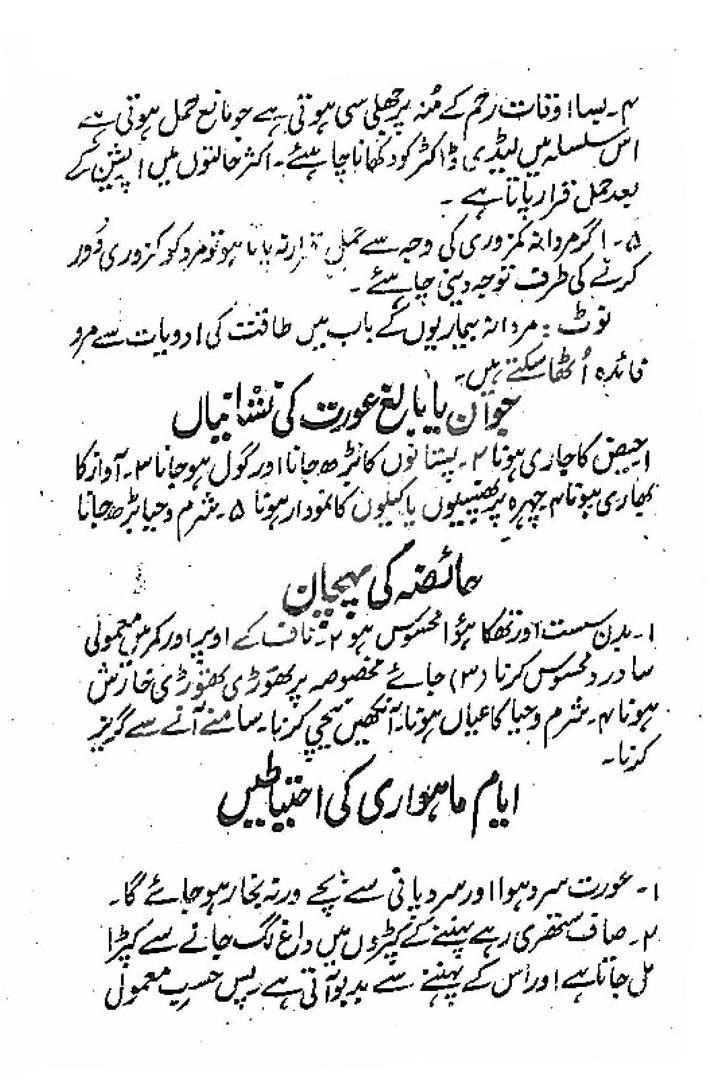 ۴۔ بسا اوقات رحم کے مُنہ پر جھلی سی ہوتی ہے جو مانع حمل ہوتی ہے
اس سلسلہ میں لیڈی ڈاکٹر کو دکھانا چاہیئے۔ اکثر حالتوں میں اپشین کے
بعد حمل قرار پاتا ہے۔
۵۔ اگر مردانہ کمزوری کی وجہ سے حمل قرار نہ پاتا ہو تو مرد کو کمزوری دُور
کرنے کی طرف توجہ دینی چاہئے۔
نوٹ: مردانہ بیماریوں کے باب میں طاقت کی ادویات سے مرد
فائدہ اُٹھا سکتے ہیں۔
جوان یا بالغ عورت کی نشانیاں
۱حیض کا جاری ہونا ۲۔ پستانوں کا بڑھ جانا اور گول ہو جانا ۳۔ آواز کا
بھاری ہونا ۴۔ چہرہ پر پھنسیوں یا کیلوں کا نمودار ہونا ۵۔ شرم و حیا بڑھ جانا
حائضہ کی پہچان
۱۔ بدن سست اور تھکا ہؤا محسوس ہو ۲۔ ناف کے اوپر اور کمر میں معمولی
سا درد محسوس کرنا (۳) جائے مخصوصہ پر تھوڑی تھوڑی خارش
ہونا ۴۔ شرم و حیا کا عیاں ہونا۔ آنکھیں نیچی کرنا۔ سامنے آنے سے گریز
کرنا۔
ایام ماہواری کی احتیاطیں
۱۔ عورت سرد ہوا اور سرد پانی سے بچے ورنہ بخار ہو جائے گا۔
۲۔ صاف ستھری رہے پہننے کے کپڑوں میں داغ لگ جانے سے کپڑا
مل جاتا ہے اور اس کے پہننے سے بدبو آتی ہے پس حسبِ معمول